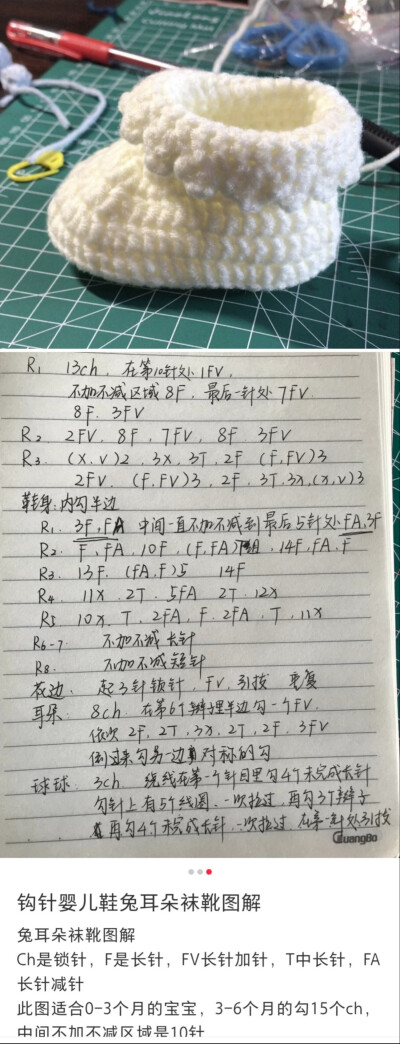 R1 13ch, 在第10针处1FV,
不加不减区域8F, 最后一针处7FV.
8F. 3FV
R2 2FV, 8F, 7FV, 8F 3FV
R3. (X,V)2, 3X, 3T, 2F (F,FV)3
2FV. (F,FV)3, 2F, 3T,3X,(X,V)3
鞋身,内勾半边
R1. 3F,FA 中间一直不加不减到最后5针处FA,3F
R2. F,FA,10F,(F,FA)7组,14F,FA,F
R3. 13F. (FA,F)5 14F
R4. 11X .2T. 5FA 2T, 12X
R5 10X, T, 2FA, F. 2FA, T, 11X
R6-7 不加不减 长针
R8. 不加不减短针
花边. 起3针锁针, FV, 引拔 重复
耳朵. 8ch. 在第6个辫子里半边勾一个FV.
依次2F, 2T, 3X, 2T, 2F, 3FV
倒过来勾另一边对称的勾
球球. 3ch 绕线在第一个针目里勾4个未完成长针
勾针上有5个线圈. 一次拉过 再勾3个辫子
再勾4个未完成长针. 一次拉过 在第一针处引拔
GuangBo
钩针婴儿鞋兔耳朵袜靴图解
兔耳朵袜靴图解
Ch是锁针，F是长针，FV长针加针，T中长针，FA
长针减针
此图适合0-3个月的宝宝，3-6个月的勾15个ch，
中间不加不减区域是10针